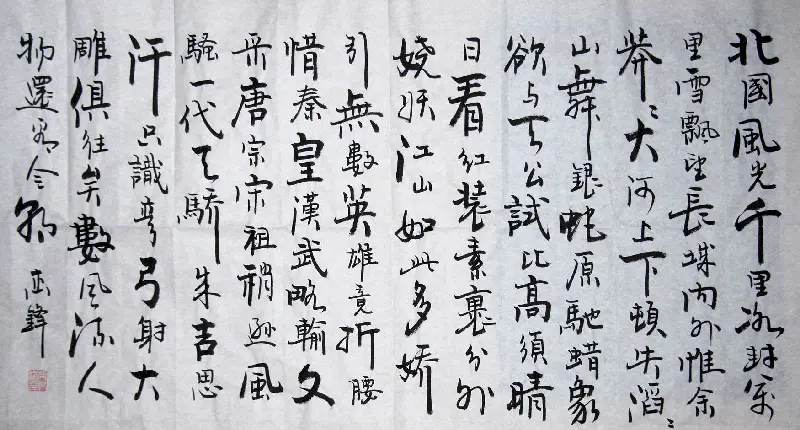 北國風光千里冰封萬
里雪飄望長城内外惟余
莽〻大河上下頓失滔〻
山舞銀蛇原馳蜡象
欲与天公試比高須晴
日看红装素裹分外
嬈妖江山如此多嬌
引無數英雄竟折腰
惜秦皇漢武略輸文
采唐宗宋祖稍遜風
騷一代天驕成吉思
汗只識彎弓射大
雕俱往矣數風流人
物還看今朝 鋒